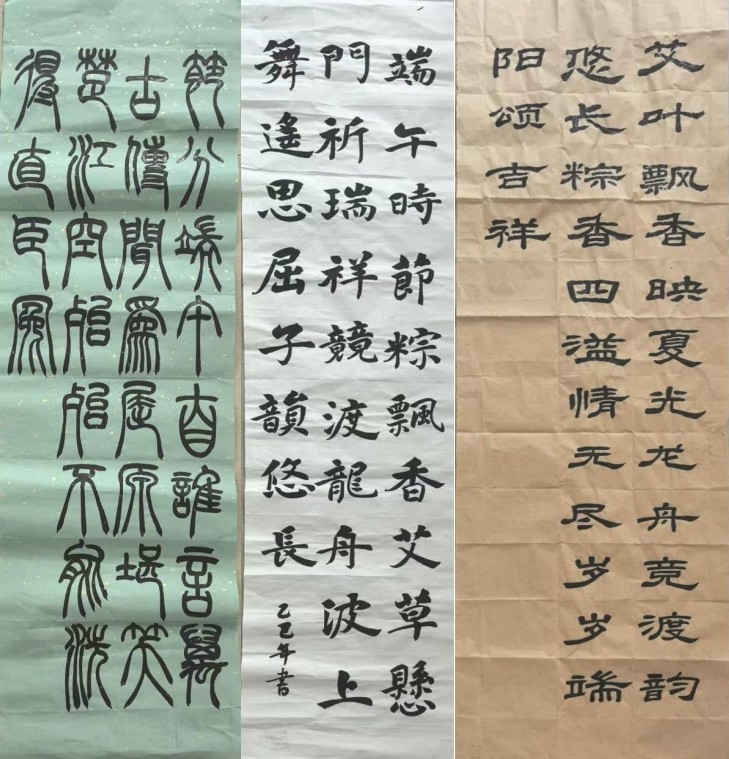 節分端午自誰言萬
古傳聞為屈原堪笑
楚江空渺渺不能洗
得直臣冤
端午時節粽飄香艾草懸
門祈瑞祥競渡龍舟波上
舞遙思屈子韻悠長
乙巳年書
艾叶飘香映夏光龙舟竞渡韵
悠长粽香四溢情无尽岁岁端
阳颂吉祥